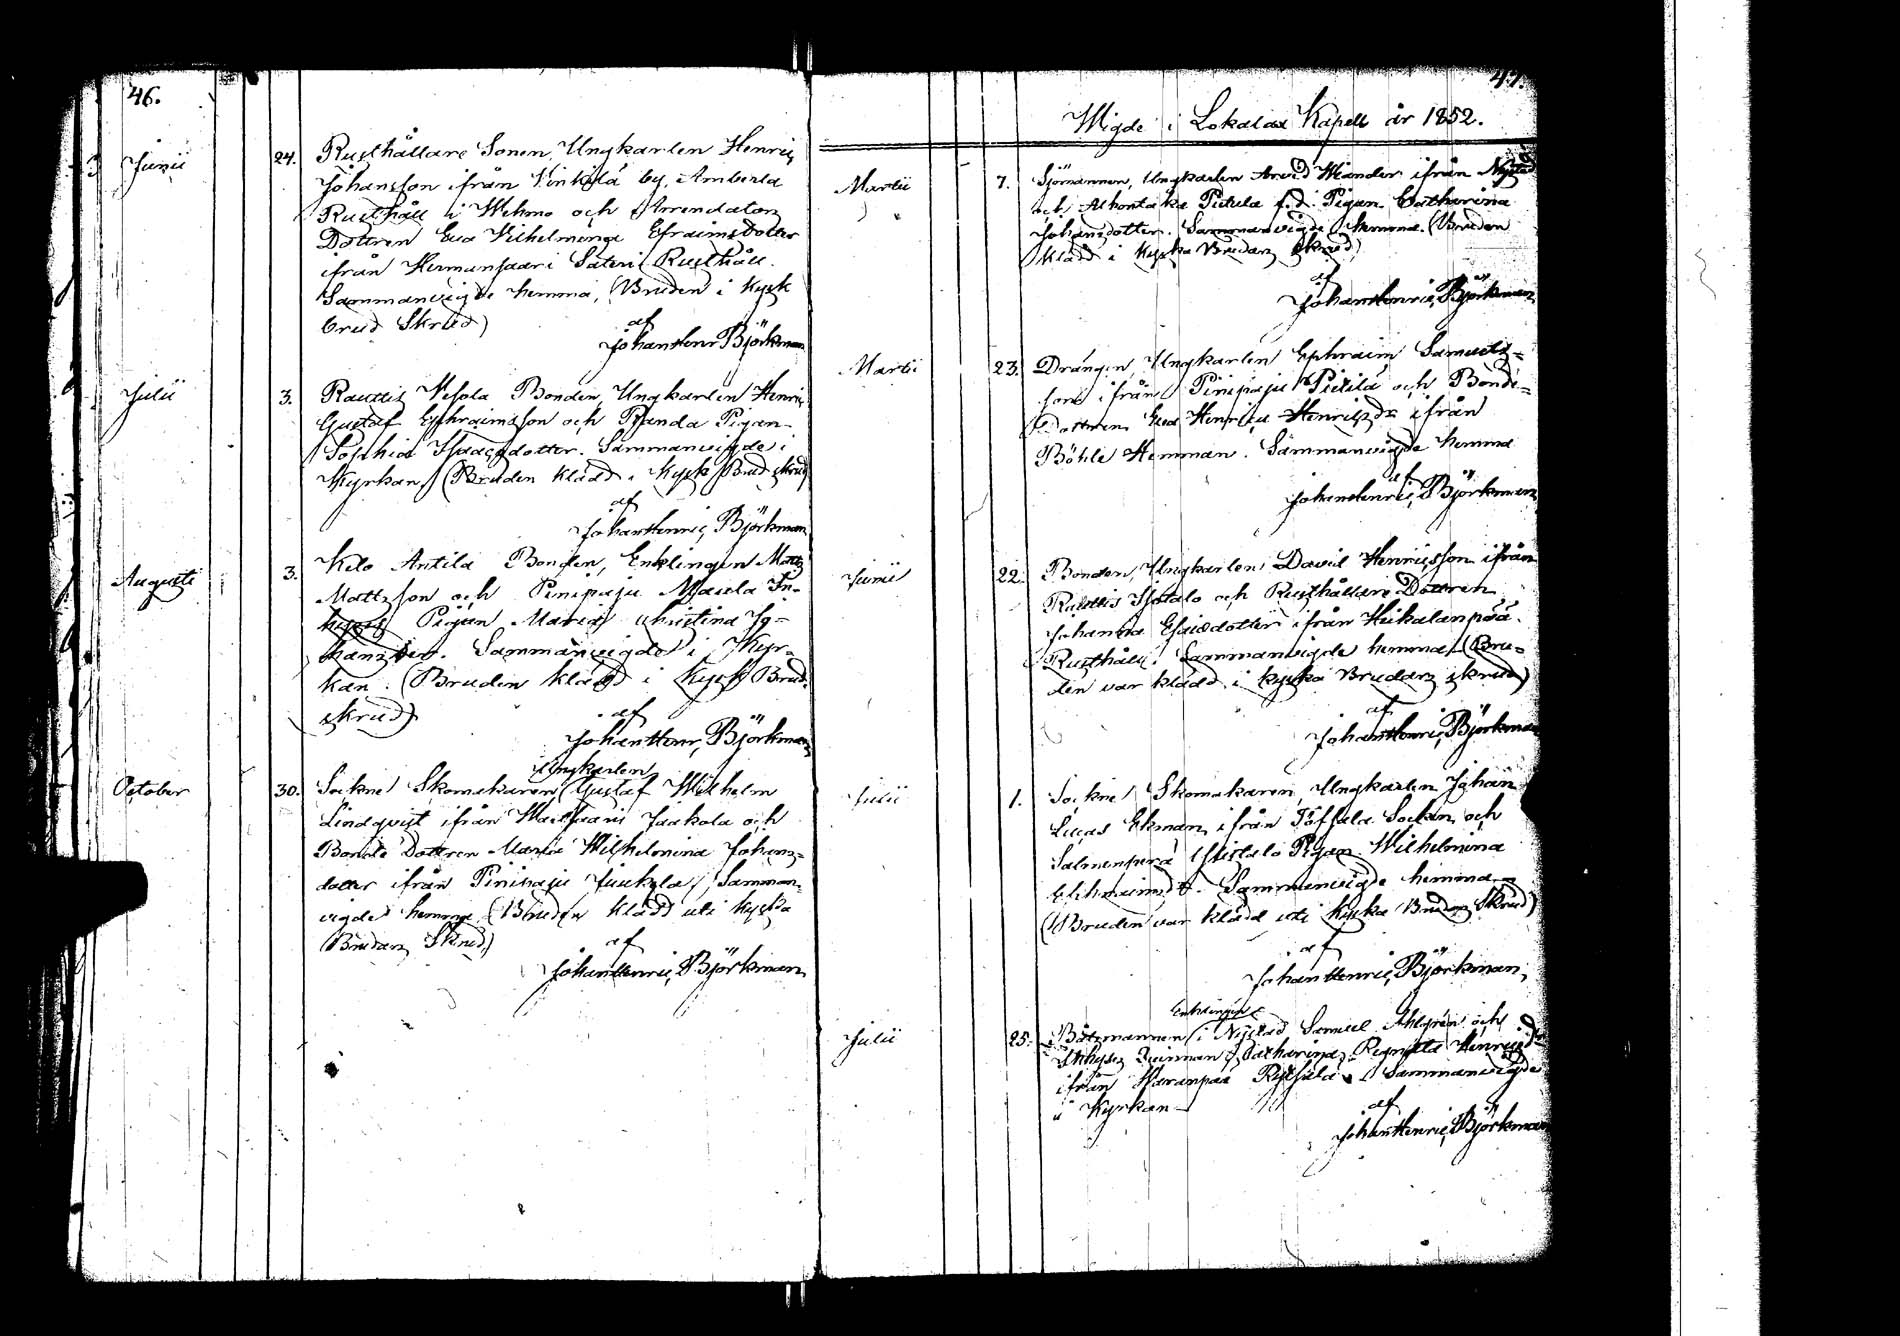 46.
Junii 24. Rusthållare Sonen, Ungkarlen Henric
Johansson ifrån Vinkilä by, Amberla
Rusthåll i Wehmo och Arrendators
Dottren Eva Vilhelmina Efraimsdotter
ifrån Hermansaari Säteri Rusthåll.
Sammanvigde hemma, (Bruden i kysk
brud Skrud)
af
Johan Henr Björkman
Julii 3. Rauttis Vesola Bonden, Ungkarlen Henric
Gustaf Ephraimsson och Randa Pigan
Sophia Isaacsdotter. Sammanvigde i
Kyrkan, (Bruden klädd i Kysk Brud skrud)
af
Johan Henric Björkman
Augusti 3. Kelo Antila Bonden, Enklingen Matts
Mattsson och Pinipaju Maula In-
hyses Pigan Maria Christina Jo-
hansdr. Sammanvigde i Kyr-
kan. (Bruden klädd i Kysk Brud-
skrud)
af
Johan Henr, Björkman
Ungkarlen
October 30. Sockne Skomakaren Gustaf Wilhelm
Lindqvist ifrån Jaakola och
Bonde Dottren Maria Wilhelmina Johans-
dotter ifrån Pinipaju Juukola, Samman-
vigde hemma (Bruden klädd uti kyska
Brudars Skrud)
af
Johan Henric, Björkman
47.
Wigde i Lokalax Kapell år 1852.
Martii 7. Sjömannen, Ungkarlen Arvid Wander ifrån Nystad
och Alhontaka Pietila f.d. Pigan Catharina
Johansdotter. Sammanvigde hemma. (Bruden
klädd i kyska Brudars skrud)
af
Johan Henric, Björkman
Martii 23. Drängen, Ungkarlen Ephraim Samuels-
son ifrån Pinipaju Pietilä och Bonde-
Dottren Eva Henrica Henricsdr ifrån
Böhle Hemman. Sammanvigde hemma
af
Johan Henric, Björkman
Junii 22. Bonden, Ungkarlen David Henricsson ifrån
Rauttis Isotalo och Rusthållare Dottren
Johanna Esaiedotter ifrån Heikalanpää
Rusthåll. Sammanvigde hemma (Bru-
den var klädd i kyska Brudars skrud)
af
Johan Henric, Björkman
Julii 1. Sockne Skomakaren, Ungkarlen Johan
Lucas Ekman ifrån Töfsala Socken och
Salmenperä Ylistalo Pigan Wilhelmina
Ephraimsdr. Sammanvigde hemma
(Bruden var klädd uti kyska Brudars Skrud)
af
Johan Henric, Björkman,
Enklingen
Julii 25. Båtsmannen i Nystad Samuel Ahlgren och
Inhyses Qvinnan Catharina Regina Henricsdr
ifrån Haranpää Sammanvigde
i Kyrkan
af
Johan Henric, Björkman